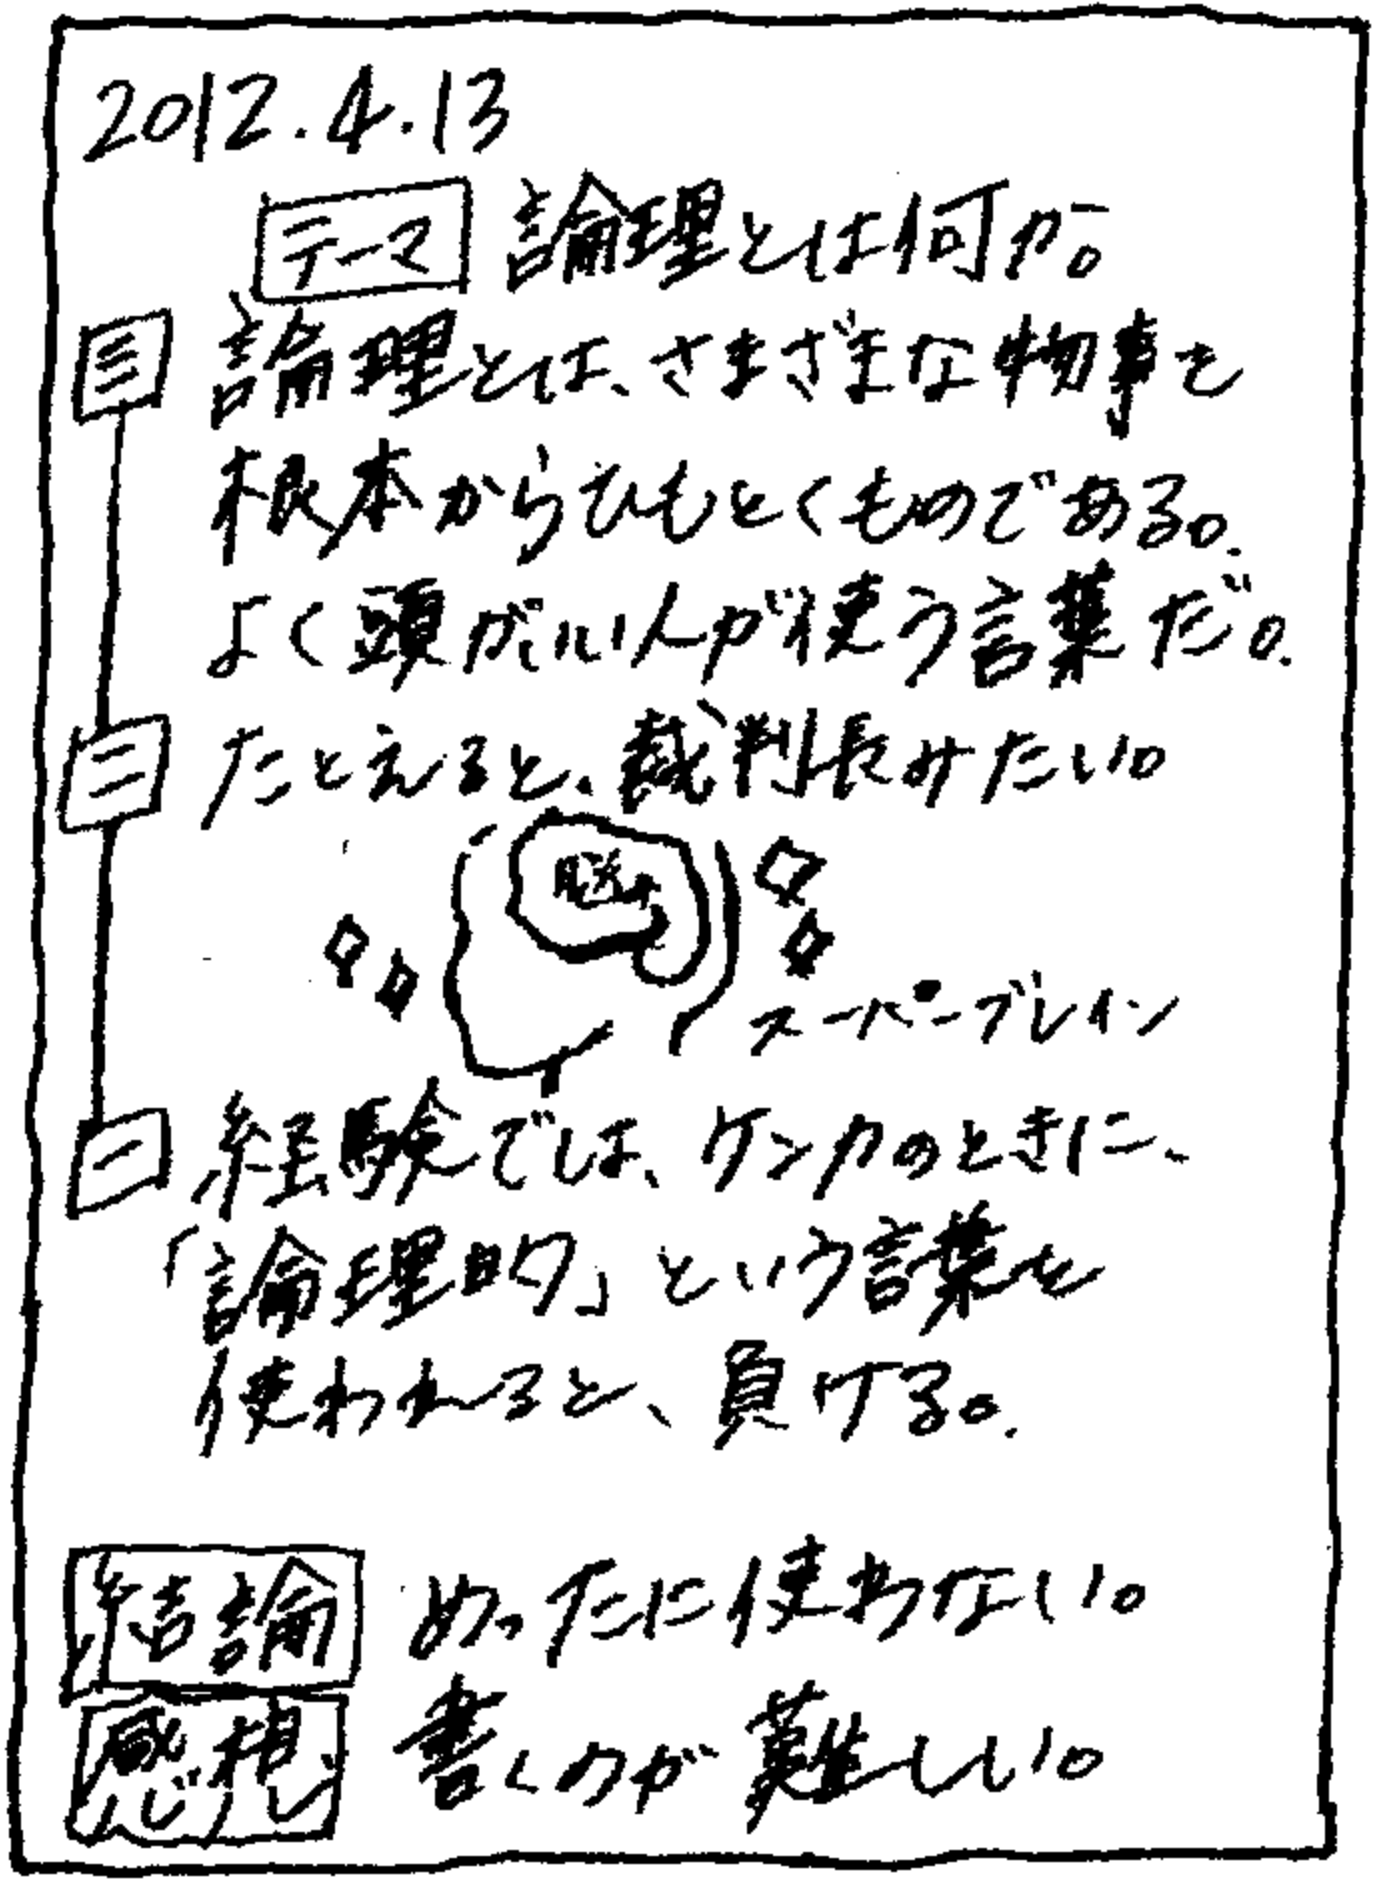 2012.4.13
テーマ 論理とは何か。
三 論理とは、さまざまな物事を
根本からひもとくものである。
よく頭がいい人が使う言葉だ。
二 たとえると、裁判長みたい。
脳
スーパーブレイン
一 経験では、ケンカのときに、
「論理的」という言葉を
使われると、負ける。
結論 めったに使わない。
感想 書くのが難しい。